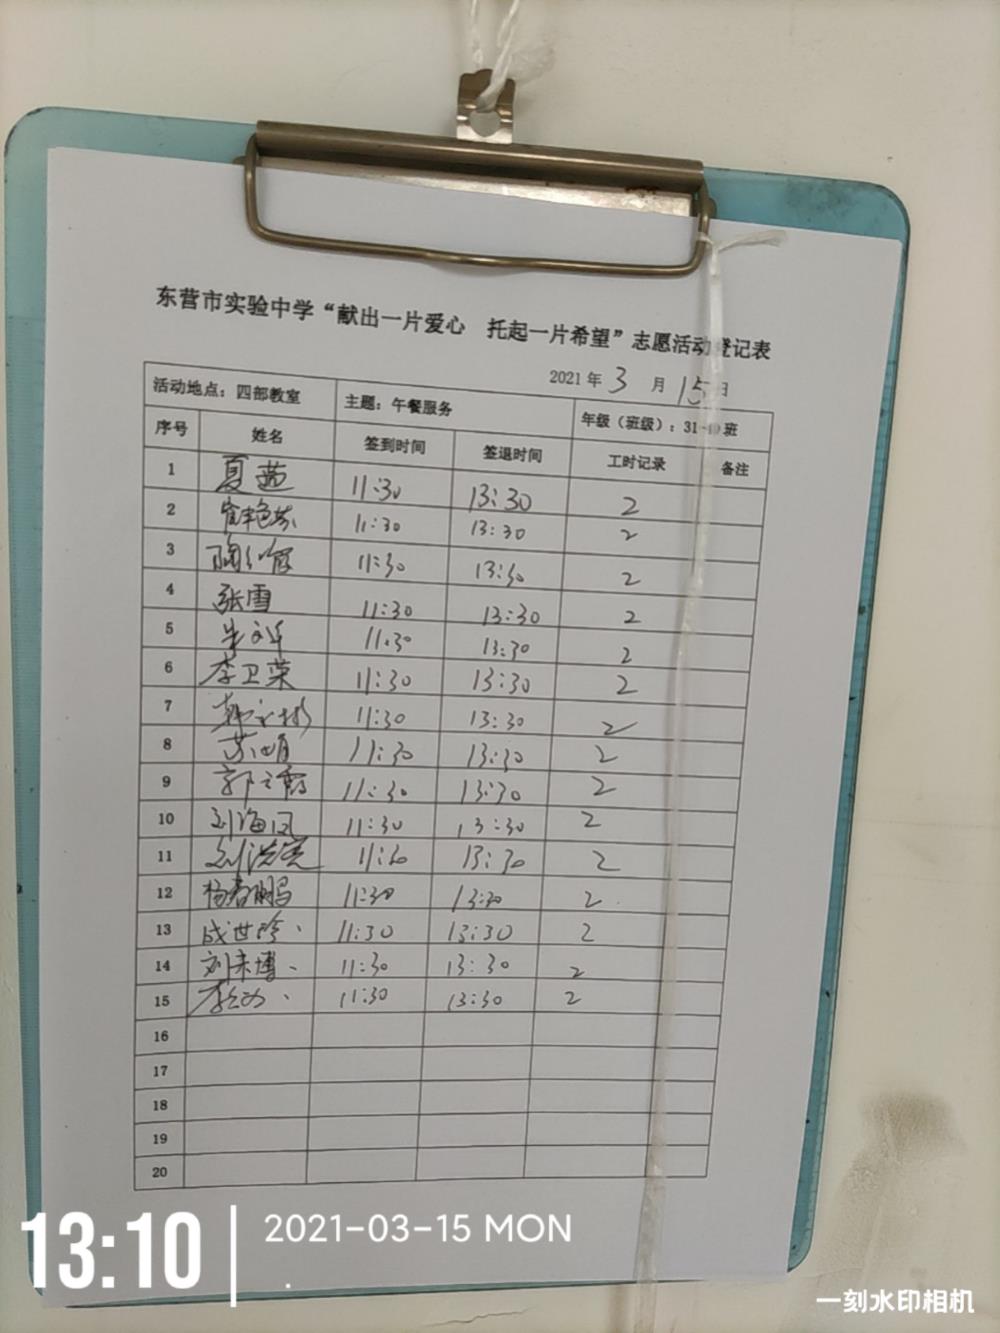 东营市实验中学“献出一片爱心 托起一片希望”志愿活动登记表
2021年3月15日
活动地点：四部教室 主题：午餐服务 年级（班级）：31-40班
序号 姓名 签到时间 签退时间 工时记录 备注
1 夏茜 11:30 13:30 2
2 11:30 13:30 2
3 11:30 13:30 2
4 张雪 11:30 13:30 2
5 11:30 13:30 2
6 李卫荣 11:30 13:30 2
7 11:30 13:30 2
8 苏娟 11:30 13:30 2
9 11:30 13:30 2
10 刘海凤 11:30 13:30 2
11 刘洪亮 13:30 2
12 杨春鹏 11:30 13:30 2
13 成世玲 11:30 13:30 2
14 刘来博 11:30 13:30 2
15 11:30 13:30 2
16
17
18
19
20
13:10 2021-03-15 MON
一刻水印相机